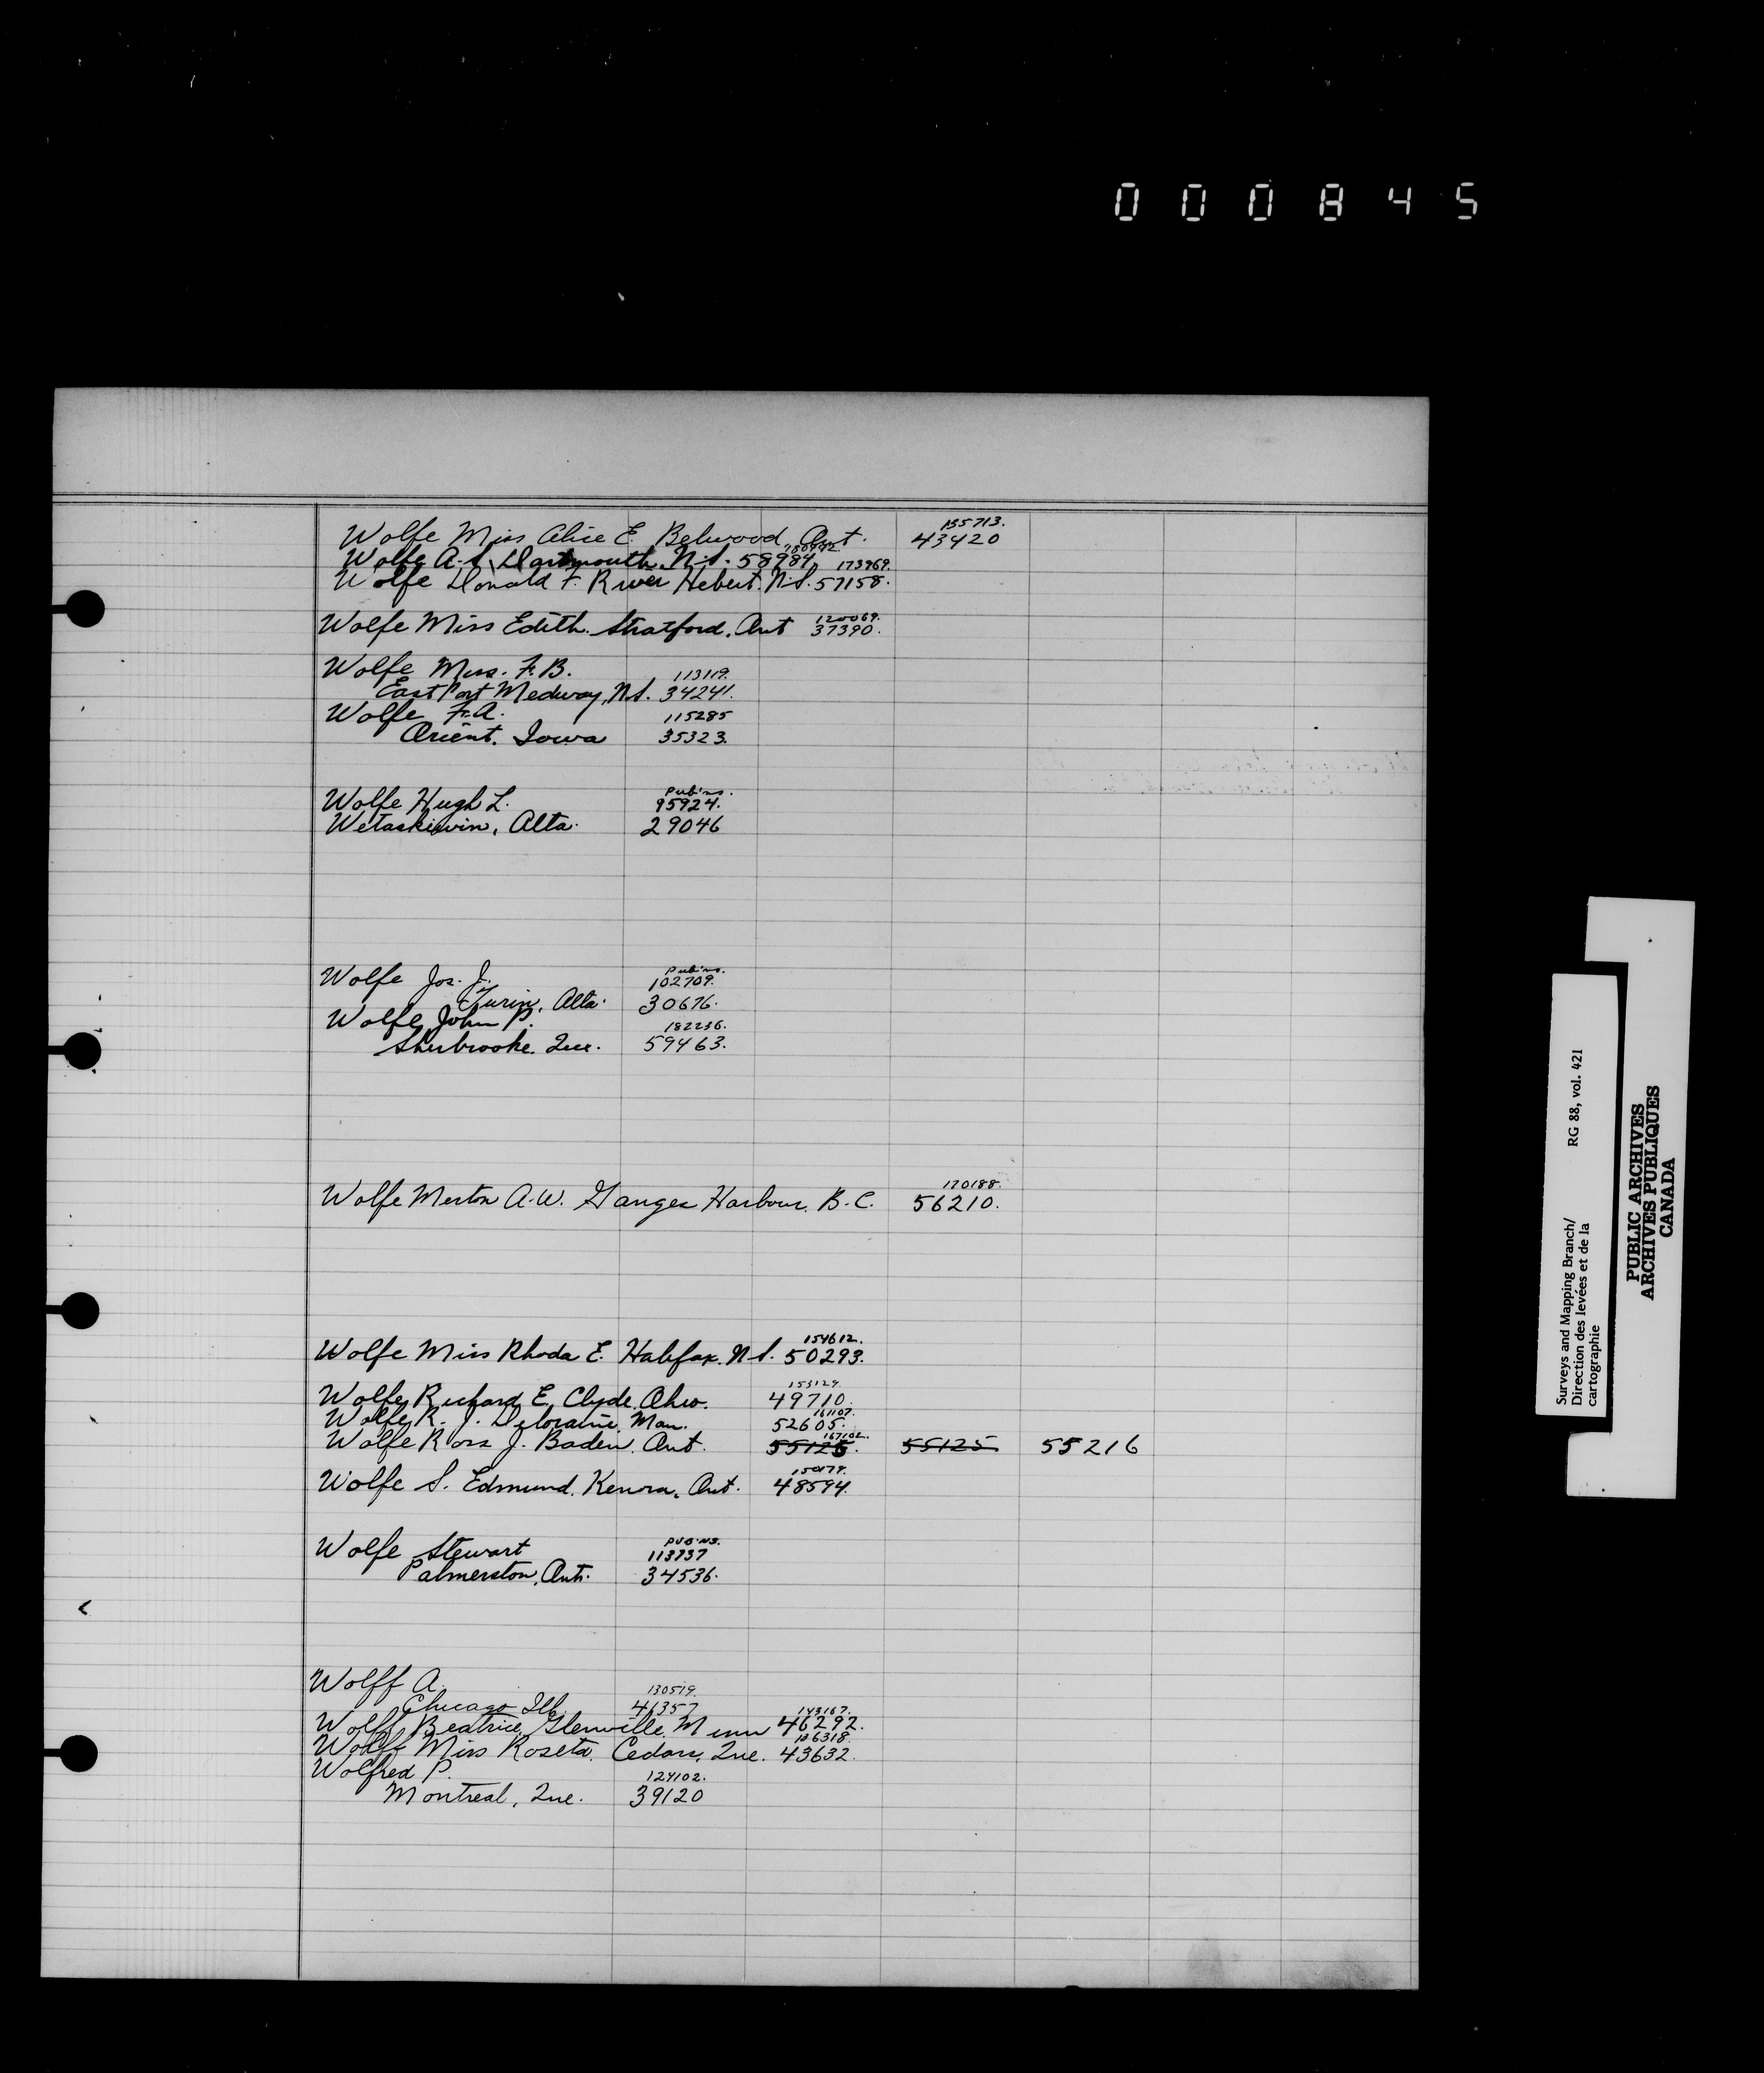 0 0 0 8 4 5
135713.
Wolfe Miss Alice E. Belwood, Ont. 43420
Wolfe A. S. Dartmouth. N.S. 58984.
173969.
Wolfe Donald F. River Hebert. N.S. 57158.
120069.
Wolfe Miss Edith. Stratford, Ont 37390.
Wolfe Mrs. F. B. 113119.
East Port Medway, N.S. 34241.
Wolfe F. A. 115285
Orient. Iowa 35323.
Pub. no.
Wolfe Hugh L. 95924.
Wetaskiwin, Alta. 29046
Pub. no.
Wolfe Jos. J. 102709.
Turin, Alta. 30676.
Wolfe John P. 182236.
Sherbrooke. Que. 59463.
170188.
Wolfe Merton A. W. Ganges Harbour. B.C. 56210.
154612.
Wolfe Miss Rhoda E. Halifax. N.S. 50293.
153129.
Wolfe Richard E. Clyde, Ohio. 49710.
161107.
Wolfe R. J. Deloraine. Man. 52605.
167102.
Wolfe Ross J. Baden. Ont. 55125. 55125 55216
Wolfe S. Edmund. Kenora, Ont. 48594.
Pub. no.
Wolfe Stewart 113737
Palmerston, Ont. 34536.
Wolff A. 130519.
Chicago Ill. 41357
143167.
Wolff Beatrice, Glenville, Minn 46292.
Wolff Miss Roseta. Cedars, Que. 43632.
Wolfred P. 124102.
Montreal, Que. 39120
Surveys and Mapping Branch/ RG 88, vol. 421
Direction des levées et de la
cartographie
PUBLIC ARCHIVES
ARCHIVES PUBLIQUES
CANADA